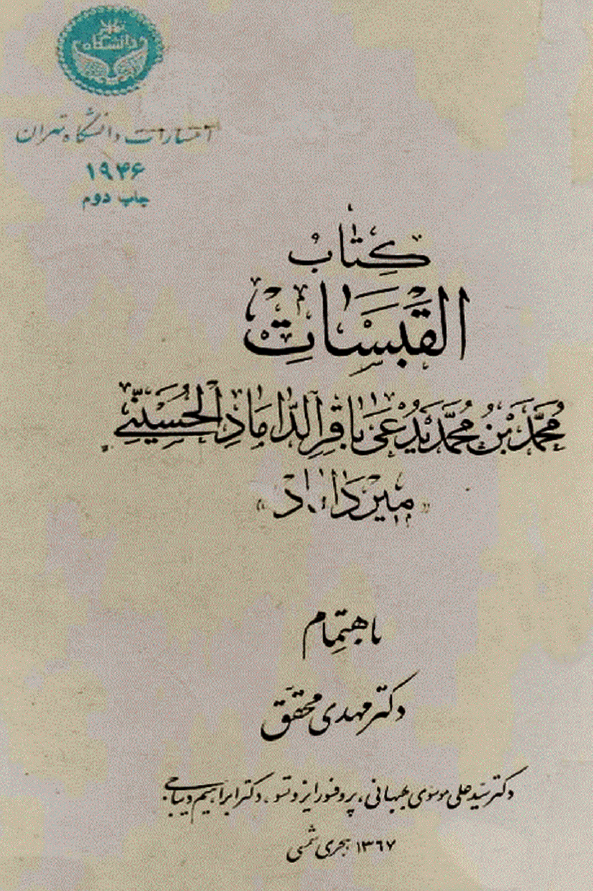 دانشگاه تهران
انتشارات دانشگاه تهران
۱۹۴۶
چاپ دوم
كِتٰاب
القَبَسَاتِ
مُحَمَّد بْنُ مُحَمَّد يُدْعىٰ بٰاقِرِ الدّٰامٰادِ الحُسَيْنِّي
«ميردٰامٰاد»
باهتِمام
دكتر مهدی محقّق
دكتر سيّد علی موسوی بهبهانی، پروفسور ايزوتسو، دكتر ابراهيم ديباجی
۱۳۶۷ هجری شمسی